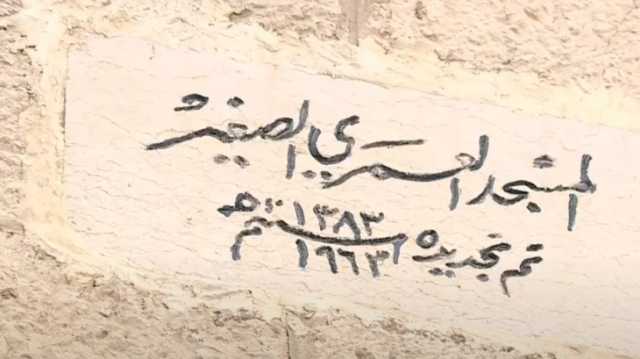 المسجد العمري الصغير
تم تجديده سنة ١٣٨٣ هـ
١٩٦٣ م